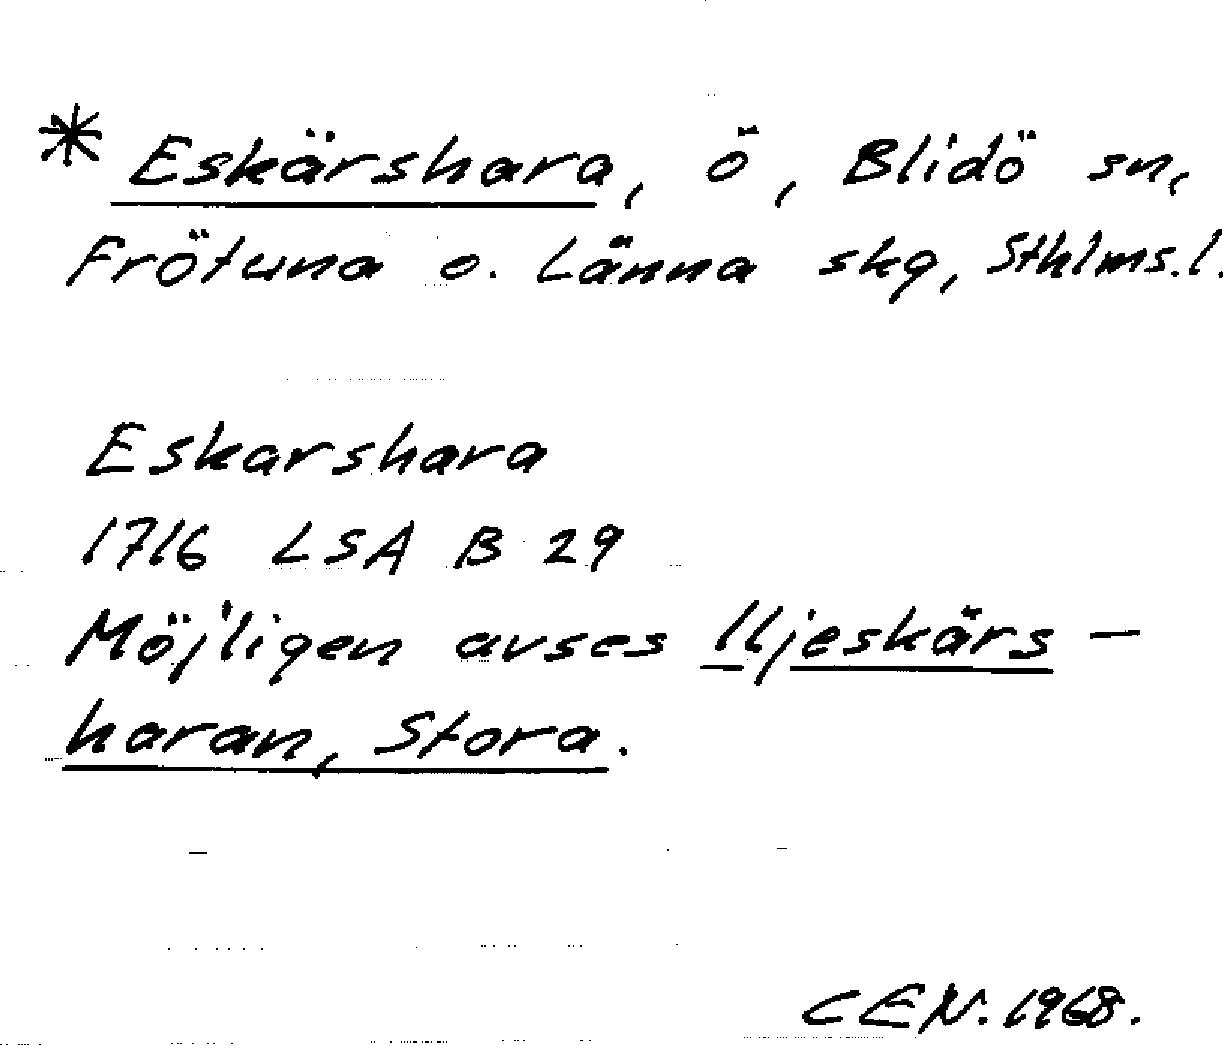 * Eskärshara, ö, Blidö sn,
Frötuna o. Länna skg, Sthlms.l.
Eskarshara
1716 LSA B 29
Möjligen avses Iljeskärs-
haran, Stora.
CEN. 1968.